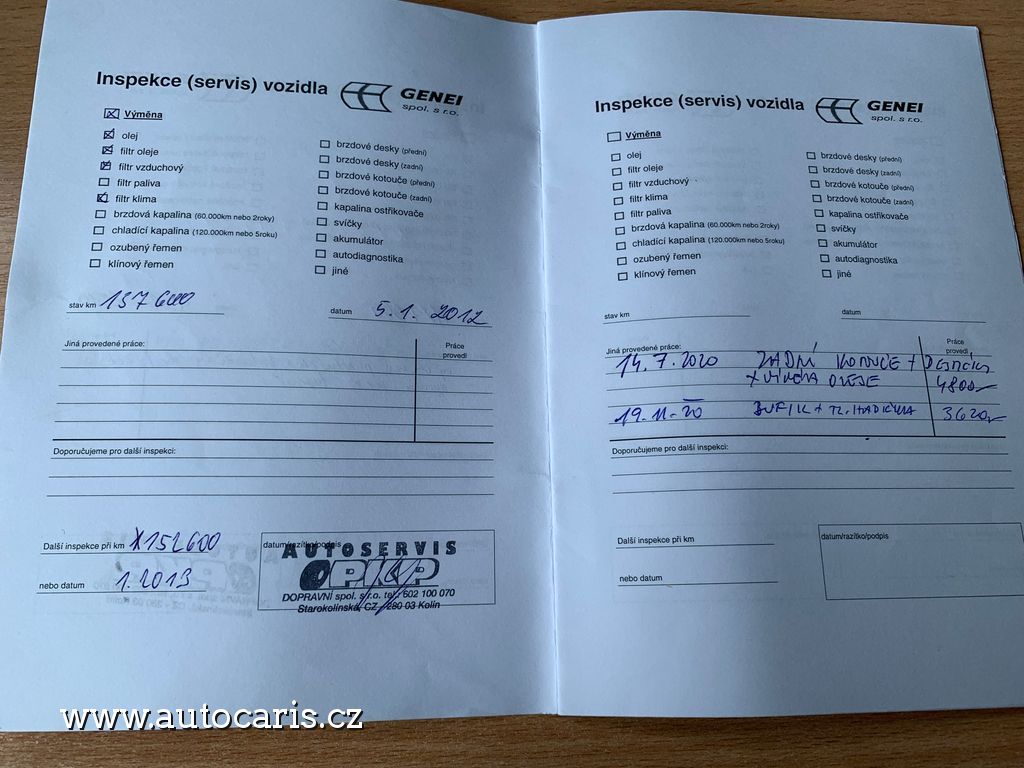 Inspekce (servis) vozidla GENEI
spol. s r.o.
Výměna
olej
filtr oleje
filtr vzduchový
filtr paliva
filtr klima
brzdová kapalina (60.000km nebo 2roky)
chladící kapalina (120.000km nebo 5roku)
ozubený řemen
klínový řemen
brzdové desky (přední)
brzdové desky (zadní)
brzdové kotouče (přední)
brzdové kotouče (zadní)
kapalina ostřikovače
svíčky
akumulátor
autodiagnostika
jiné
stav km 137 600
datum 5. 1. 2012
Jiná provedené práce:
Práce
provedl
Doporučujeme pro další inspekci:
Další inspekce při km 152600
nebo datum 1.2013
datum/razítko/podpis
AUTOSERVIS
DOPRAVNÍ spol. s.r.o. tel.: 602 100 070
Starokolínská, CZ - 280 03 Kolín
Inspekce (servis) vozidla GENEI
spol. s r.o.
Výměna
olej
filtr oleje
filtr vzduchový
filtr klima
filtr paliva
brzdová kapalina (60.000km nebo 2roky)
chladící kapalina (120.000km nebo 5roku)
ozubený řemen
klínový řemen
brzdové desky (přední)
brzdové desky (zadní)
brzdové kotouče (přední)
brzdové kotouče (zadní)
kapalina ostřikovače
svíčky
akumulátor
autodiagnostika
jiné
stav km
datum
Jiná provedené práce:
Práce
provedl
14. 7. 2020 ZADNÍ KOTOUČE +
+ VÝMĚNA OLEJE 4800
19. 11. 20 3620
Doporučujeme pro další inspekci:
Další inspekce při km
nebo datum
datum/razítko/podpis
www.autocaris.cz